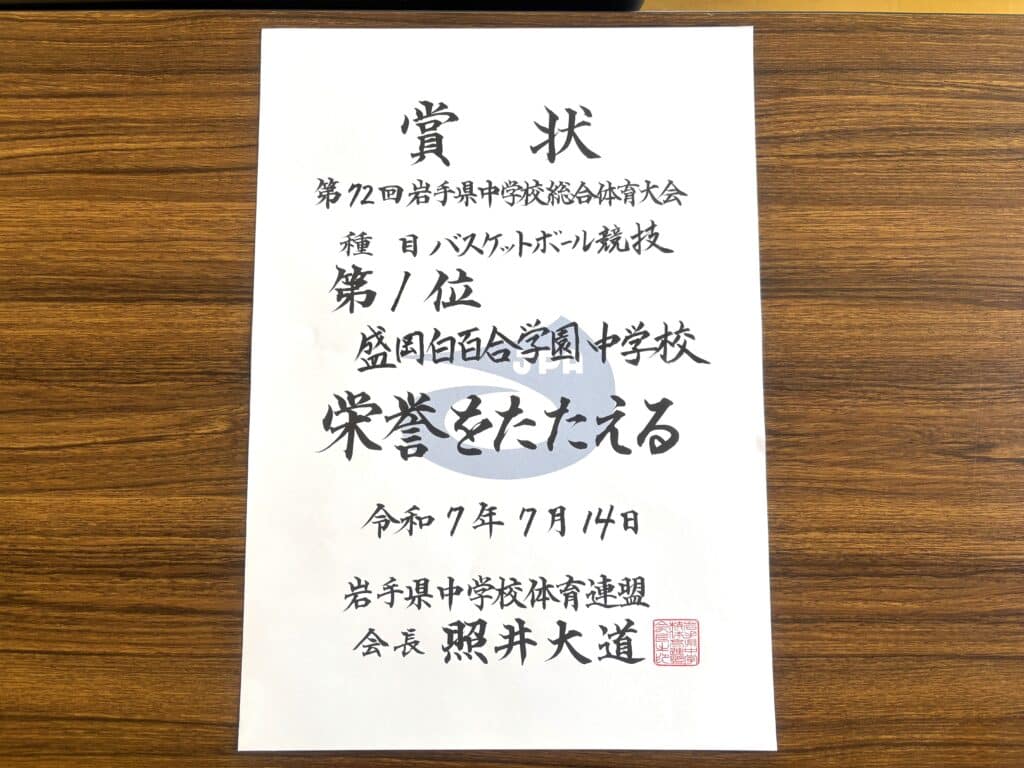 賞状
第72回岩手県中学校総合体育大会
種目 バスケットボール競技
第1位
盛岡白百合学園 中学校
JPA
栄誉をたたえる
令和7年7月14日
岩手県中学校体育連盟
会長 照井大道